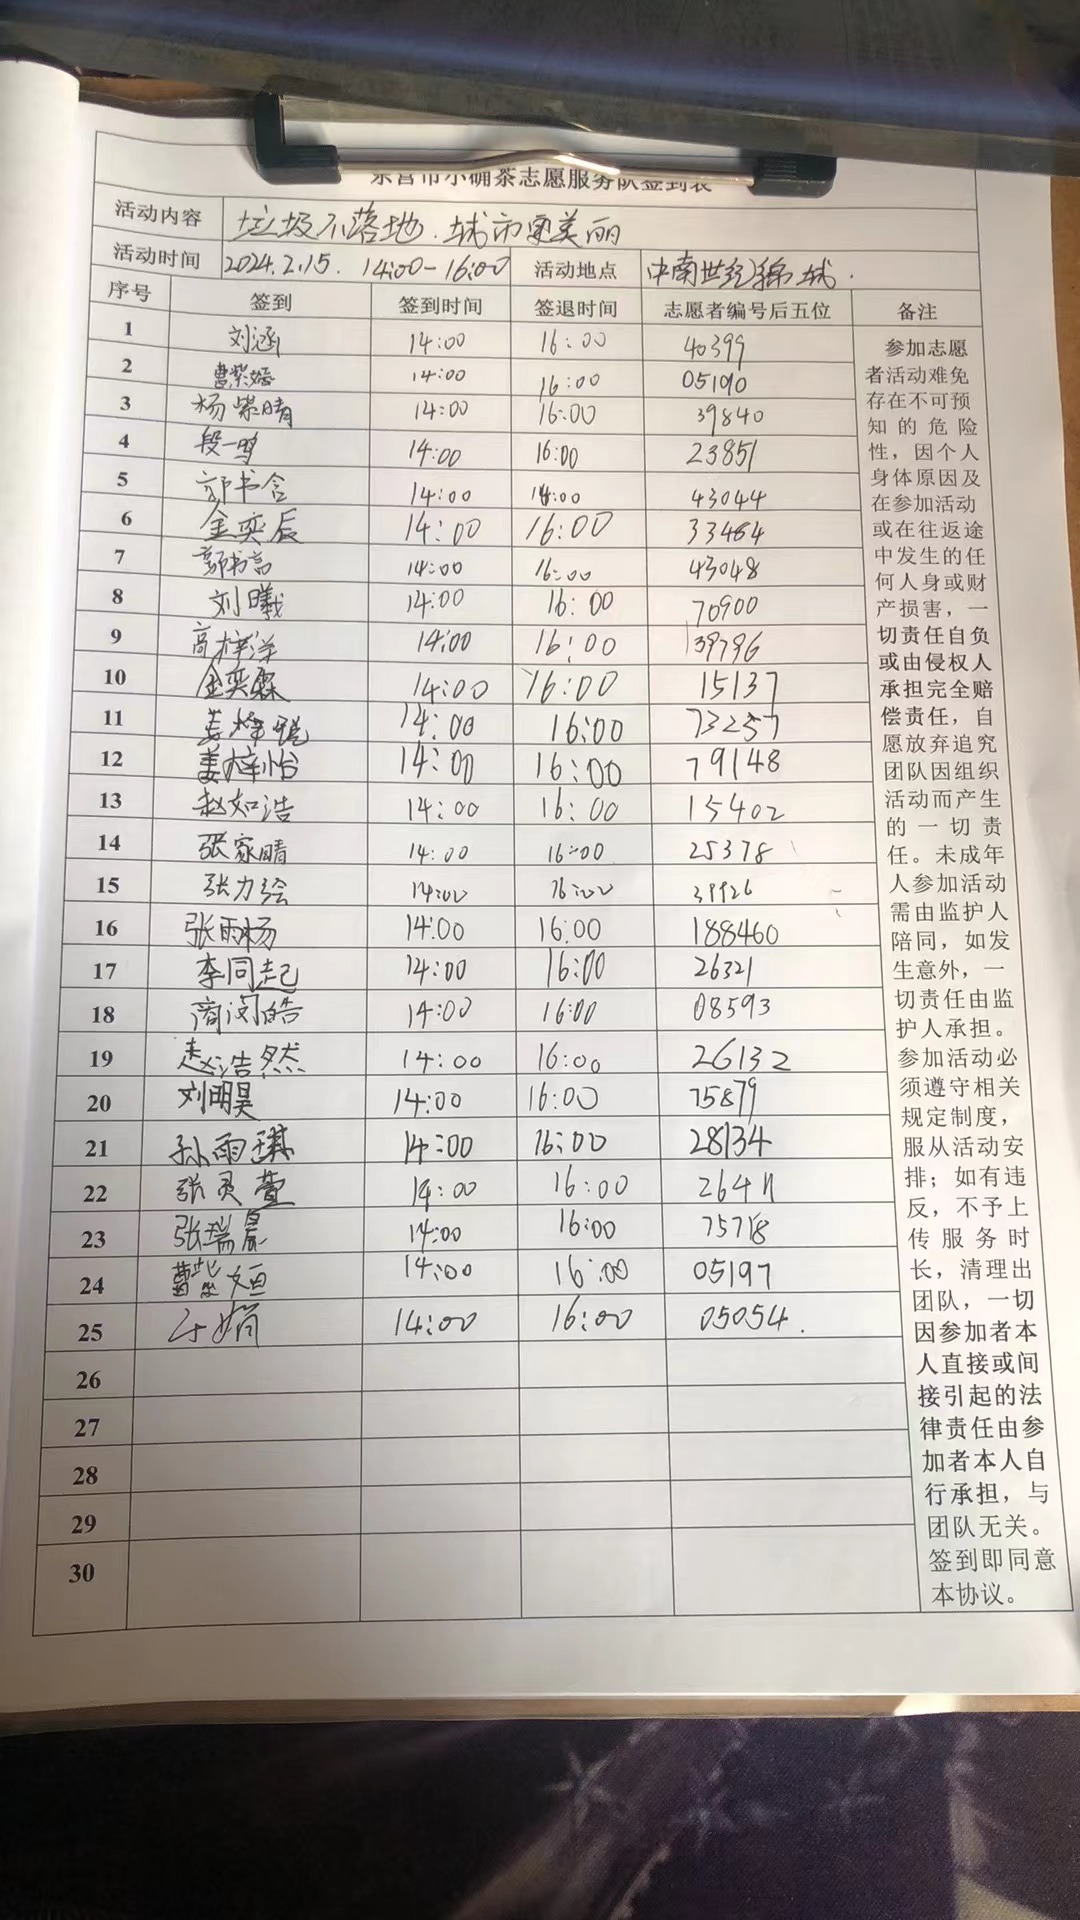 东营市小确茶志愿服务队签到表
活动内容 垃圾不落地.城市更美丽
活动时间 2024.2.15. 14:00-16:00 活动地点 中南世纪锦城.
序号 签到 签到时间 签退时间 志愿者编号后五位 备注
1 刘涵 14:00 16:00 40399
2 曹紫嫣 14:00 16:00 05190
3 杨紫晴 14:00 16:00 39840
4 段一鸣 14:00 16:00 23851
5 郭书含 14:00 14:00 43044
6 金奕辰 14:00 16:00 33464
7 郭书言 14:00 16:00 43048
8 刘曦 14:00 16:00 70900
9 高梓洋 14:00 16:00 139796
10 金奕霖 14:00 16:00 15137
11 姜梓悦 14:00 16:00 73257
12 姜梓怡 14:00 16:00 79148
13 赵如浩 14:00 16:00 15402
14 张家晴 14:00 16:00 25378
15 张力 14:00 16:00 39926
16 张雨杨 14:00 16:00 188460
17 李同起 14:00 16:00 26321
18 商闵皓 14:00 16:00 08593
19 赵浩然 14:00 16:00 26132
20 刘明昊 14:00 16:00 75879
21 孙雨琪 14:00 16:00 28134
22 张灵萱 14:00 16:00 26411
23 张瑞晨 14:00 16:00 75718
24 曹紫姮 14:00 16:00 05197
25 于娟 14:00 16:00 05054.
26
27
28
29
30
参加志愿
者活动难免
存在不可预
知的危险
性，因个人
身体原因及
在参加活动
或在往返途
中发生的任
何人身或财
产损害，一
切责任自负
或由侵权人
承担完全赔
偿责任，自
愿放弃追究
团队因组织
活动而产生
的一切责
任。未成年
人参加活动
需由监护人
陪同，如发
生意外，一
切责任由监
护人承担。
参加活动必
须遵守相关
规定制度，
服从活动安
排；如有违
反，不予上
传服务时
长，清理出
团队，一切
因参加者本
人直接或间
接引起的法
律责任由参
加者本人自
行承担，与
团队无关。
签到即同意
本协议。